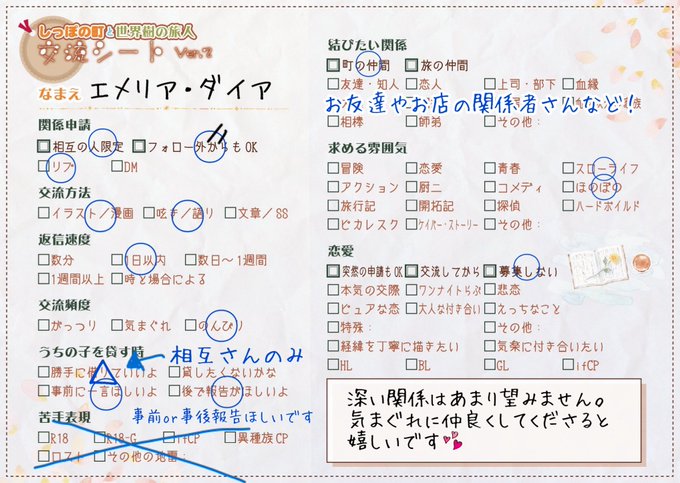 しっぽの町と世界樹の旅人
交流シート Ver.2
なまえ エメリア・ダイア
関係申請
□相互の人限定 □フォロー外からもOK
□リプ □DM
交流方法
□イラスト/漫画 □呟き/語り □文章/SS
返信速度
□数分 □1日以内 □数日～1週間
□1週間以上 □時と場合による
交流頻度
□がっつり □気まぐれ □のんびり
うちの子を貸す時
相互さんのみ
□勝手に借りていいよ □貸したくないかな
□事前に一言ほしいよ □後で報告がほしいよ
事前or事後報告ほしいです
苦手表現
□R18 □R18-G □ifCP □異種族CP
□ロスト □その他の地雷:
結びたい関係
□町の仲間 □旅の仲間
□友達・知人 □恋人 □上司・部下 □血縁
お友達やお店の関係者さんなど！
□相棒 □師弟 □その他:
求める雰囲気
□冒険 □恋愛 □青春 □スローライフ
□アクション □厨二 □コメディ □ほのぼの
□旅行記 □開拓記 □探偵 □ハードボイルド
□ピカレスク □ケイパー・ストーリー □その他:
恋愛
□突然の申請もOK □交流してから □募集しない
□本気の交際 □ワンナイトらぶ □悲恋
□ピュアな恋 □大人な付き合い □えっちなこと
□特殊: □その他:
□経緯を丁寧に描きたい □気楽に付き合いたい
□HL □BL □GL □ifCP
深い関係はあまり望みません。
気まぐれに仲良くしてくださると
嬉しいです💕